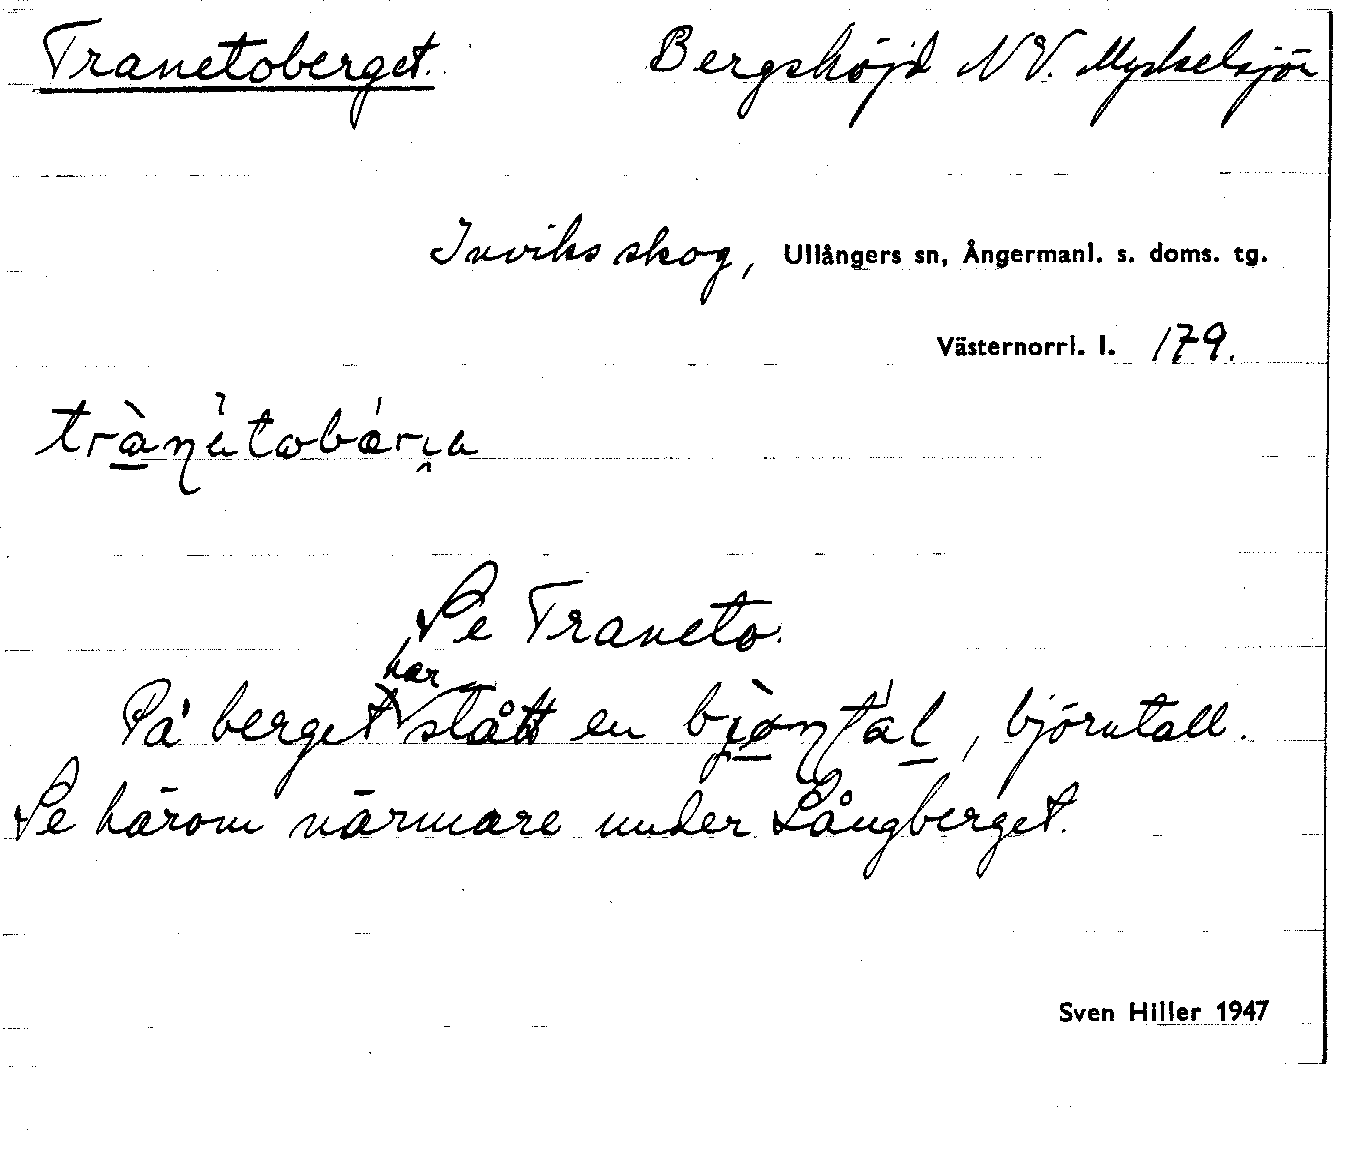 Tranetoberget. Bergshöjd NV. Myckelsjön
Inviks skog, Ullångers sn, Ångermanl. s. doms. tg.
Västernorrl. l. 179.
Se Traneto.
På berget har stått en , björntall.
Se härom närmare under Långberget.
Sven Hiller 1947